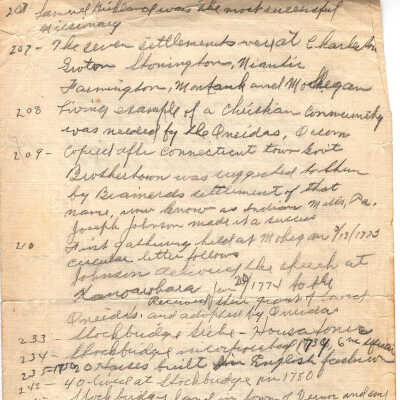 207 Samuel Kirkland was the most successful
Missionary
207 - The seven settlements were at Charlestn
Groton Stonington, Niantic
Farmington, Montauk and Mohegan
208 Living example of a Christian Community
was needed by the Oneidas, Occom
209 - Copied after Connecticut town Gov't
Brothertown was suggested to them
by Brainerds settlement of that
name, now know as Indian Mills, Pa.
Joseph Johnson made it a success
210 First gathering held at Mohegan 3/13/1773
circular letter follows
Johnson delivered the speech at
Kanoawohara Jan 20/1774 to the
Received their grant of land
Oneidas and adopted by Oneida
233 - Stockbridge Tribe - Housatonic
234 - Stockbridge incorporated 1739, 6 mi square
235 - 1750 20 Houses built in English fashion
40 lived at Stockbridge in 1750
Stockbridge land in town of Vernon and